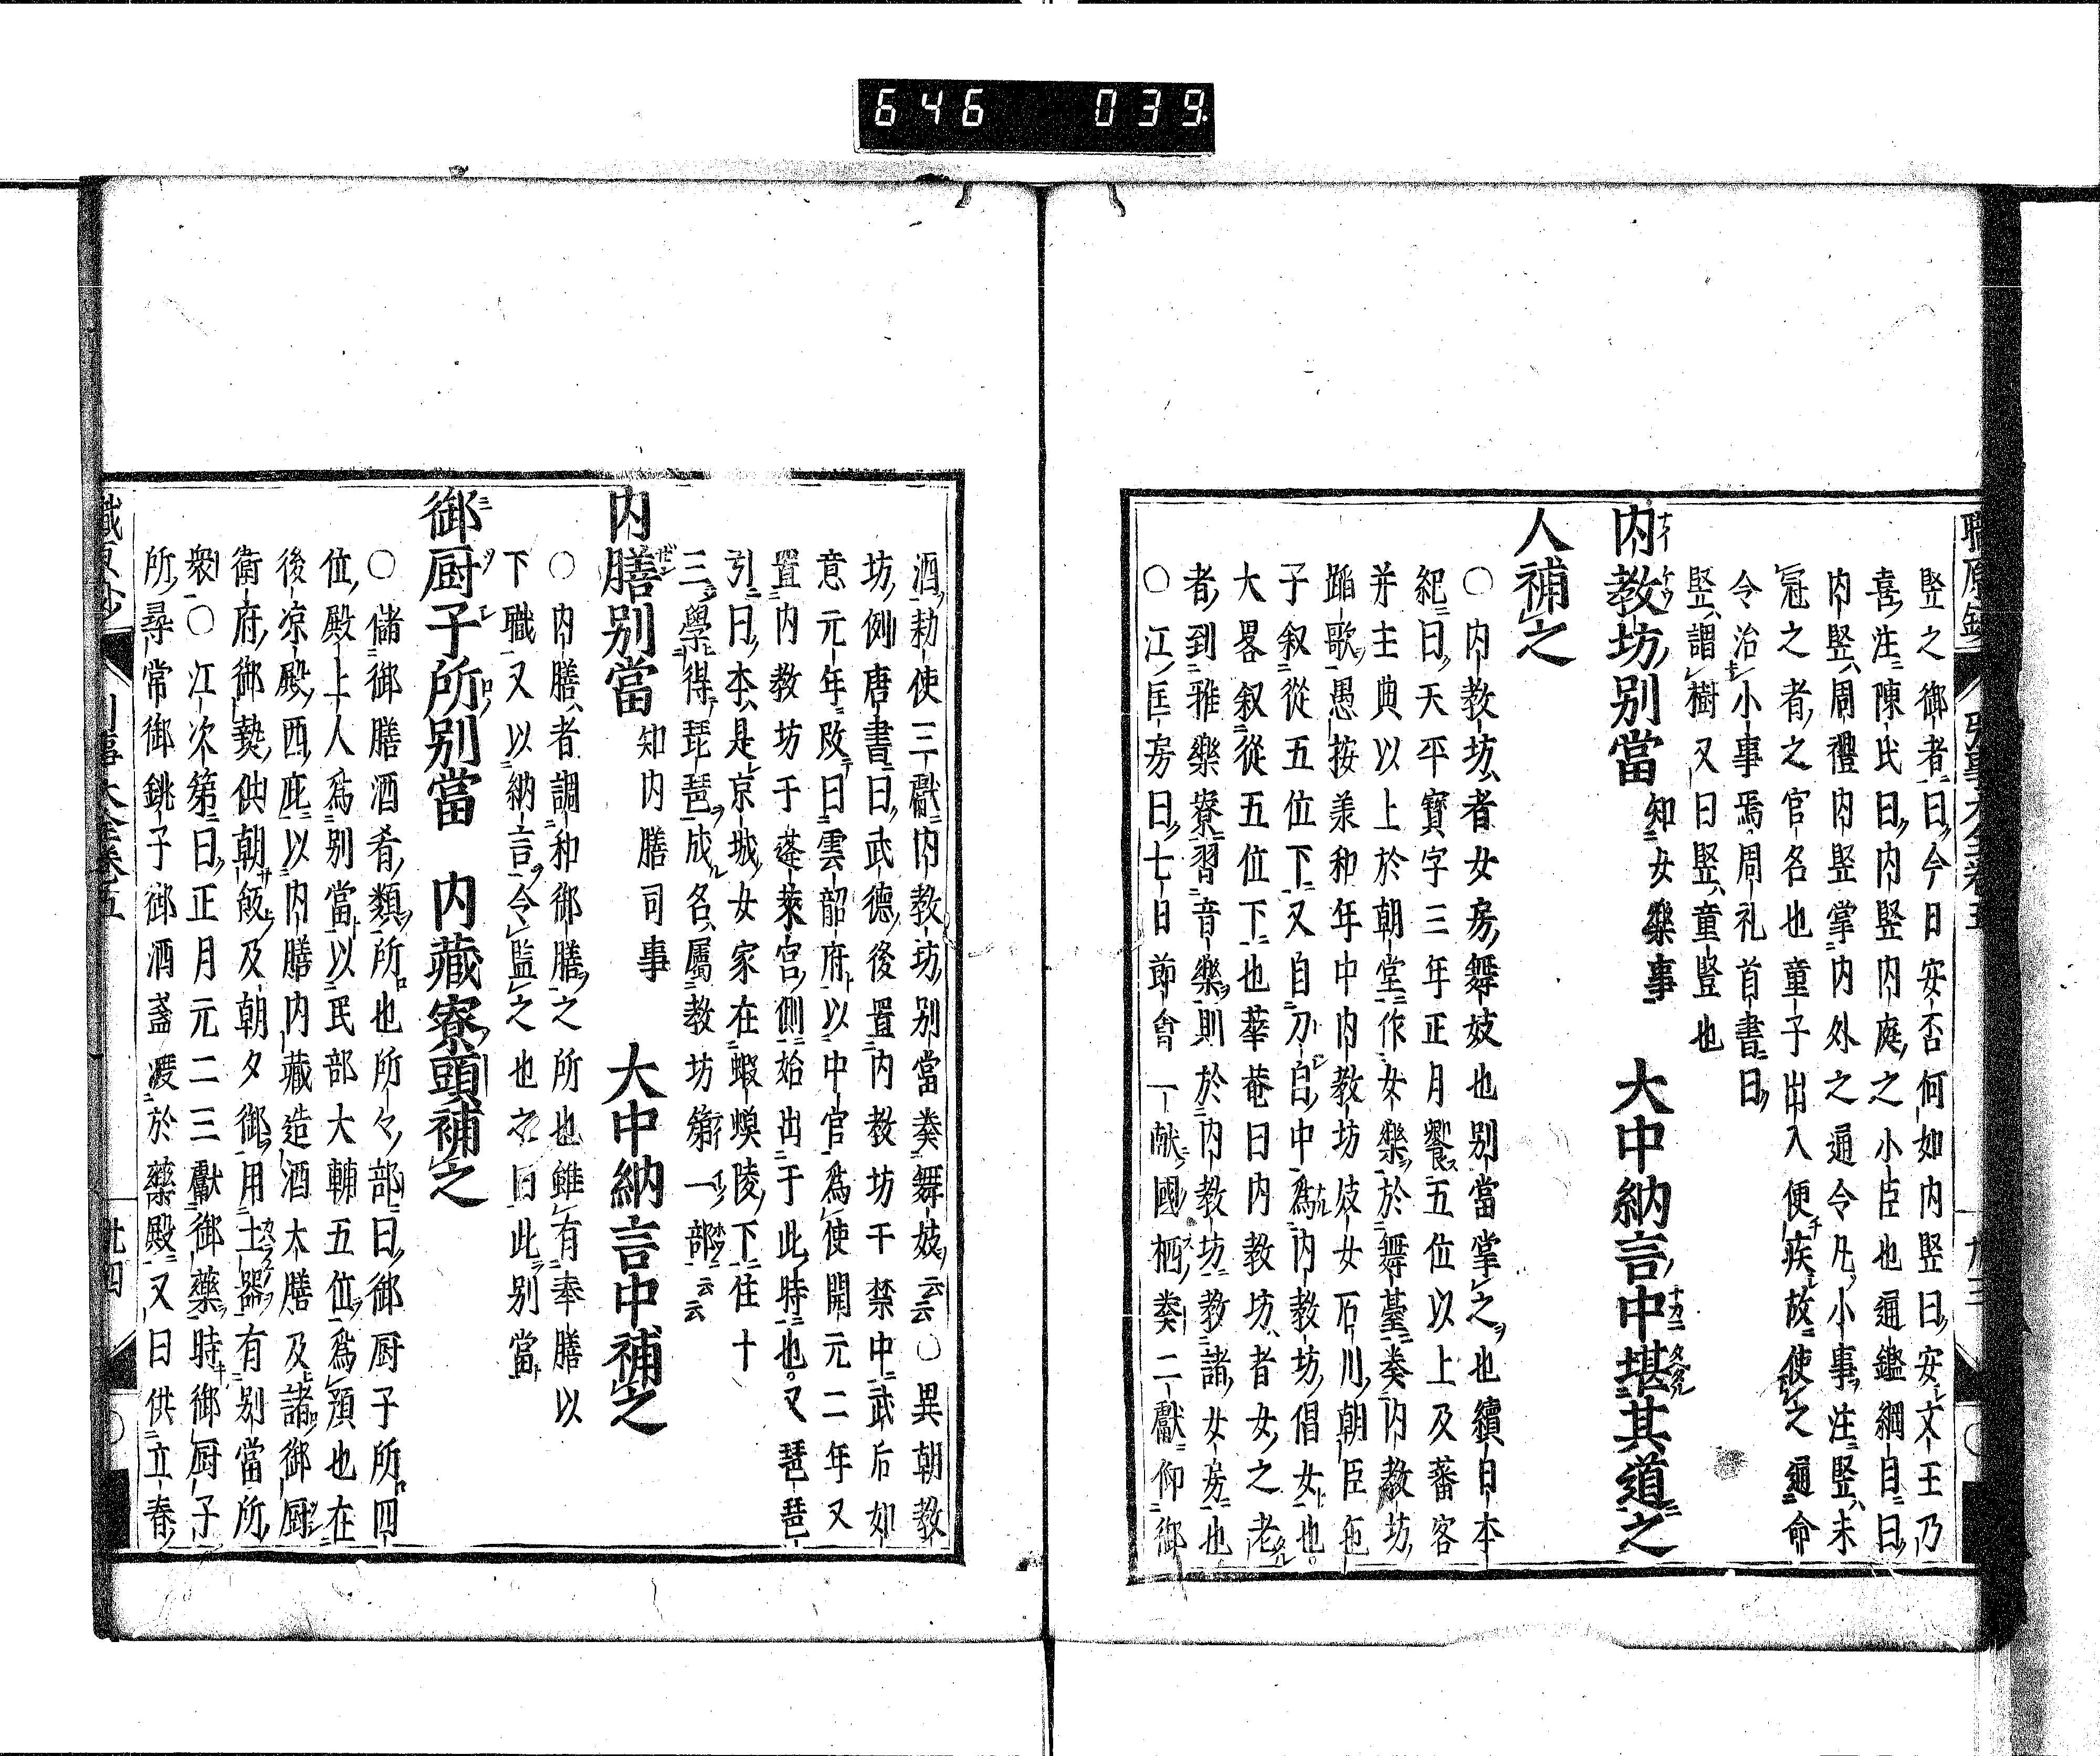 646 039
竪之御者曰今日安否何如内竪曰安文王乃
喜注陳氏曰内竪内庭之小臣也通鑑綱目曰
内竪周禮内竪掌内外之通令凡小事注竪未
冠之者之官名也童子出入便疾故使之通命
令治小事焉周礼首書曰
竪謂樹又曰竪童竪也
内教坊別當 知女樂事 大中納言中堪其道之
人補之
○内教坊者女房舞妓也別當掌之也續日本
紀曰天平寶字三年正月饗五位以上及蕃客
并主典以上於朝堂作女樂於舞臺奏内教坊
蹈歌愚按羕和年中内教坊妓女石川朝臣色
子叙從五位下又自刀自中為内教坊倡女也
大畧叙從五位下也華菴曰内教坊者女之老
者到雅樂寮習音樂則於内教坊教諸女房也
○江匡房曰七日節會一献國栖奏二獻仰御
酒勅使三獻内教坊別當奏舞妓云云○異朝教
坊例唐書曰武德後置内教坊于禁中武后如
意元年改曰雲韶府以中官為使開元二年又
置内教坊于蓬萊宮側始出于此時也又琵琶
引曰本是京城女家在蝦蟆陵下住十
三學得琵琶成名屬教坊第一部云云
内膳別當 知内膳司事 大中納言中補之
○内膳者調和御膳之所也雖有奉膳以
下職又以納言令監之也名曰此別當
御厨子所別當 内藏寮頭補之
○儲御膳酒肴類所也所々部曰御厨子所四
位殿上人為別當以民部大輔五位為預也在
後凉殿西庇以内膳内藏造酒大膳及諸御厨
衛府御贄供朝飯及朝夕御用土器有別當所
衆○江次第曰正月元二三獻御藥時御厨子
所尋常御銚子御酒盞渡於藥殿又曰供立春